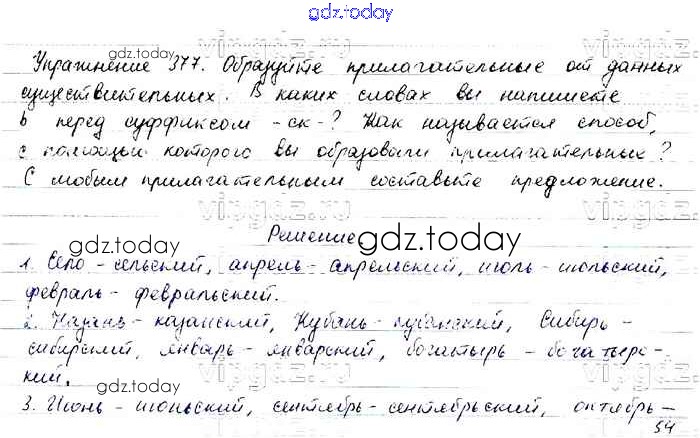 gdz.today
Упражнение 377. Образуйте прилагательные от данных
существительных. В каких словах вы напишете
ь перед суффиксом -ск-? Как называется способ,
с помощью которого вы образовали прилагательных?
С любым прилагательным составьте предложение.
Решение
1. Село - сельский, апрель - апрельский, июль - июльский,
февраль - февральский.
2. Казань - казанский, Кубань - кубанский, Сибирь -
сибирский, январь - январский, богатырь - богатырс-
кий.
3. Июнь - июньский, сентябрь - сентябрьский, октябрь -
54
gdz.today
gdz.today
gdz.today
gdz.today
gdz.today
gdz.today
gdz.today